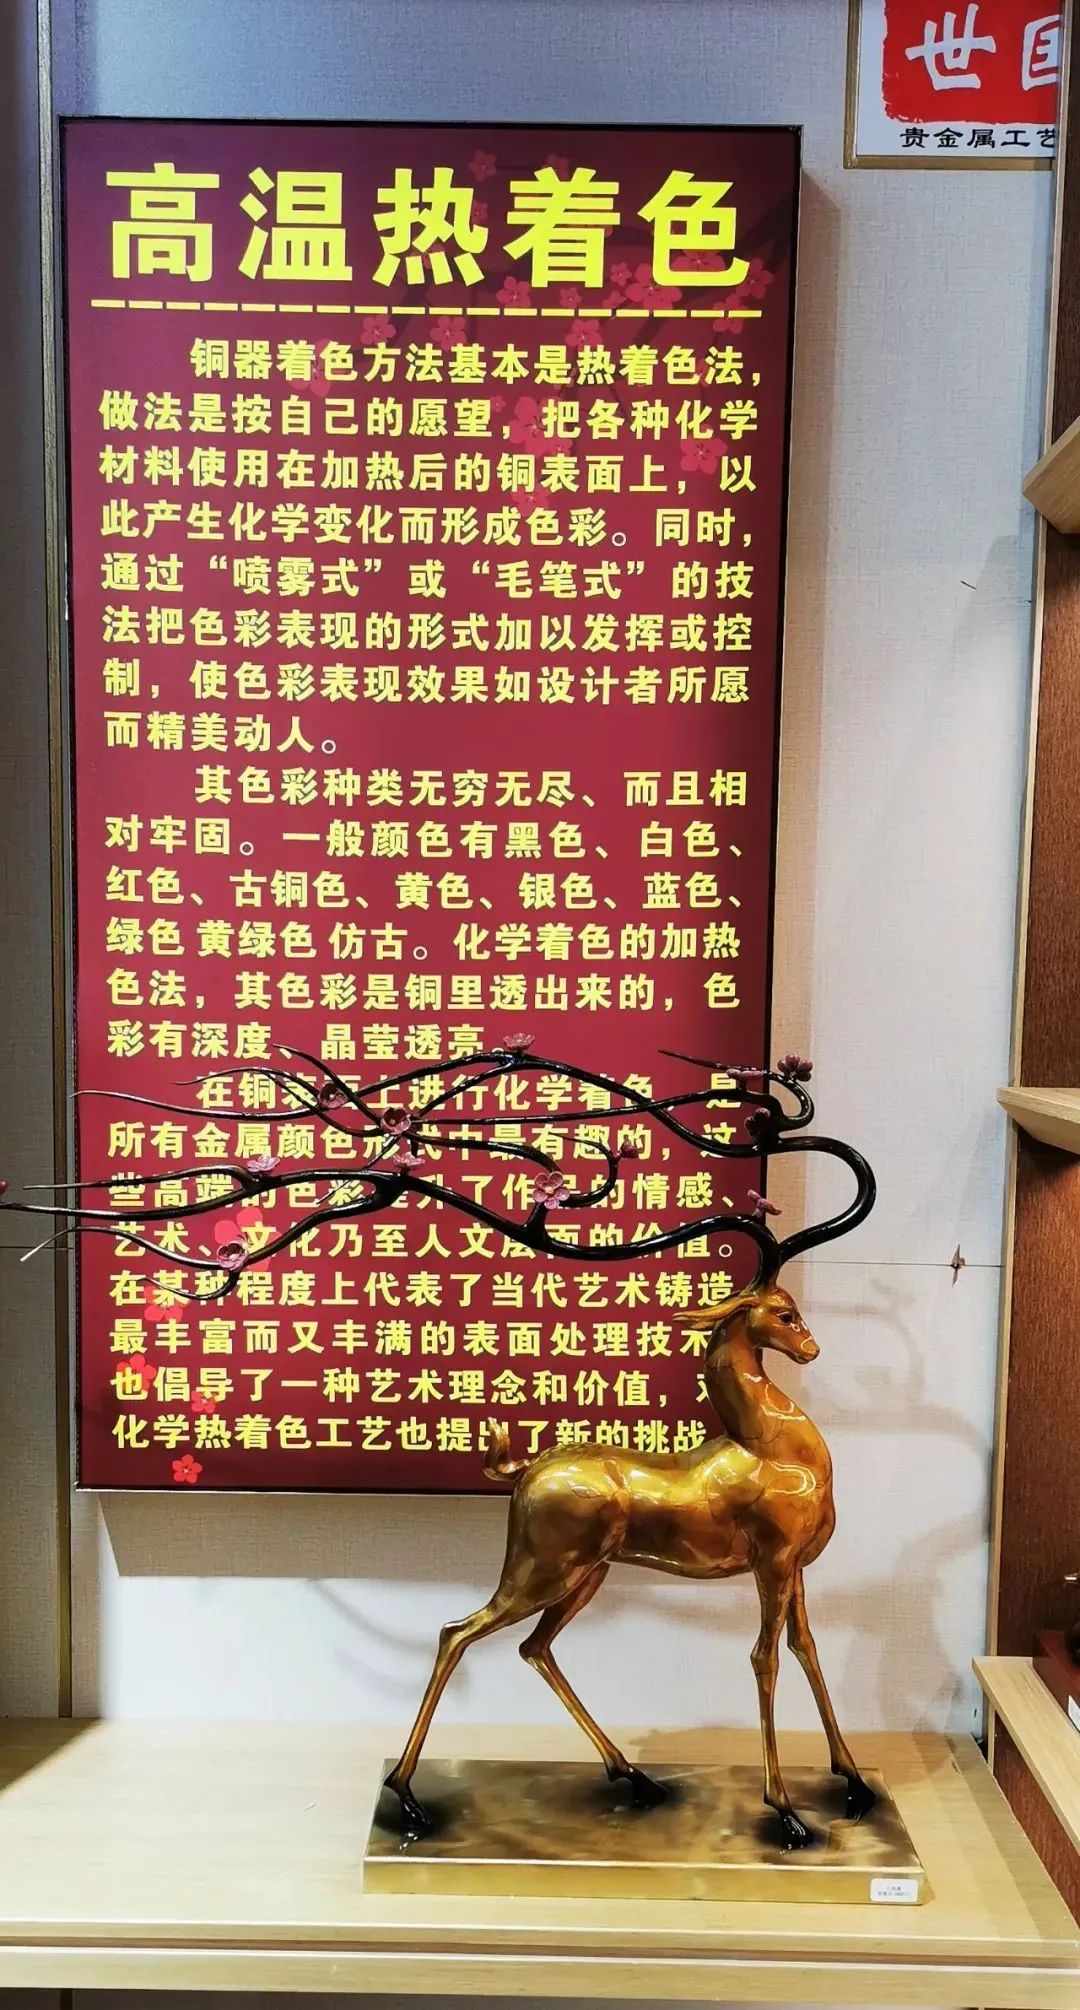 世国
贵金属工艺
高温热着色
铜器着色方法基本是热着色法,
做法是按自己的愿望,把各种化学
材料使用在加热后的铜表面上,以
此产生化学变化而形成色彩。同时,
通过“喷雾式”或“毛笔式”的技
法把色彩表现的形式加以发挥或控
制,使色彩表现效果如设计者所愿
而精美动人。
其色彩种类无穷无尽、而且相
对牢固。一般颜色有黑色、白色、
红色、古铜色、黄色、银色、蓝色、
绿色 黄绿色 仿古。化学着色的加热
色法,其色彩是铜里透出来的,色
彩有深度、晶莹透亮。
在铜表面上进行化学着色,是
所有金属颜色形式中最有趣的,这
些高端的色彩提升了作品的情感、
艺术、文化乃至人文层面的价值。
在某种程度上代表了当代艺术铸造
最丰富而又丰满的表面处理技术
也倡导了一种艺术理念和价值,对
化学热着色工艺也提出了新的挑战